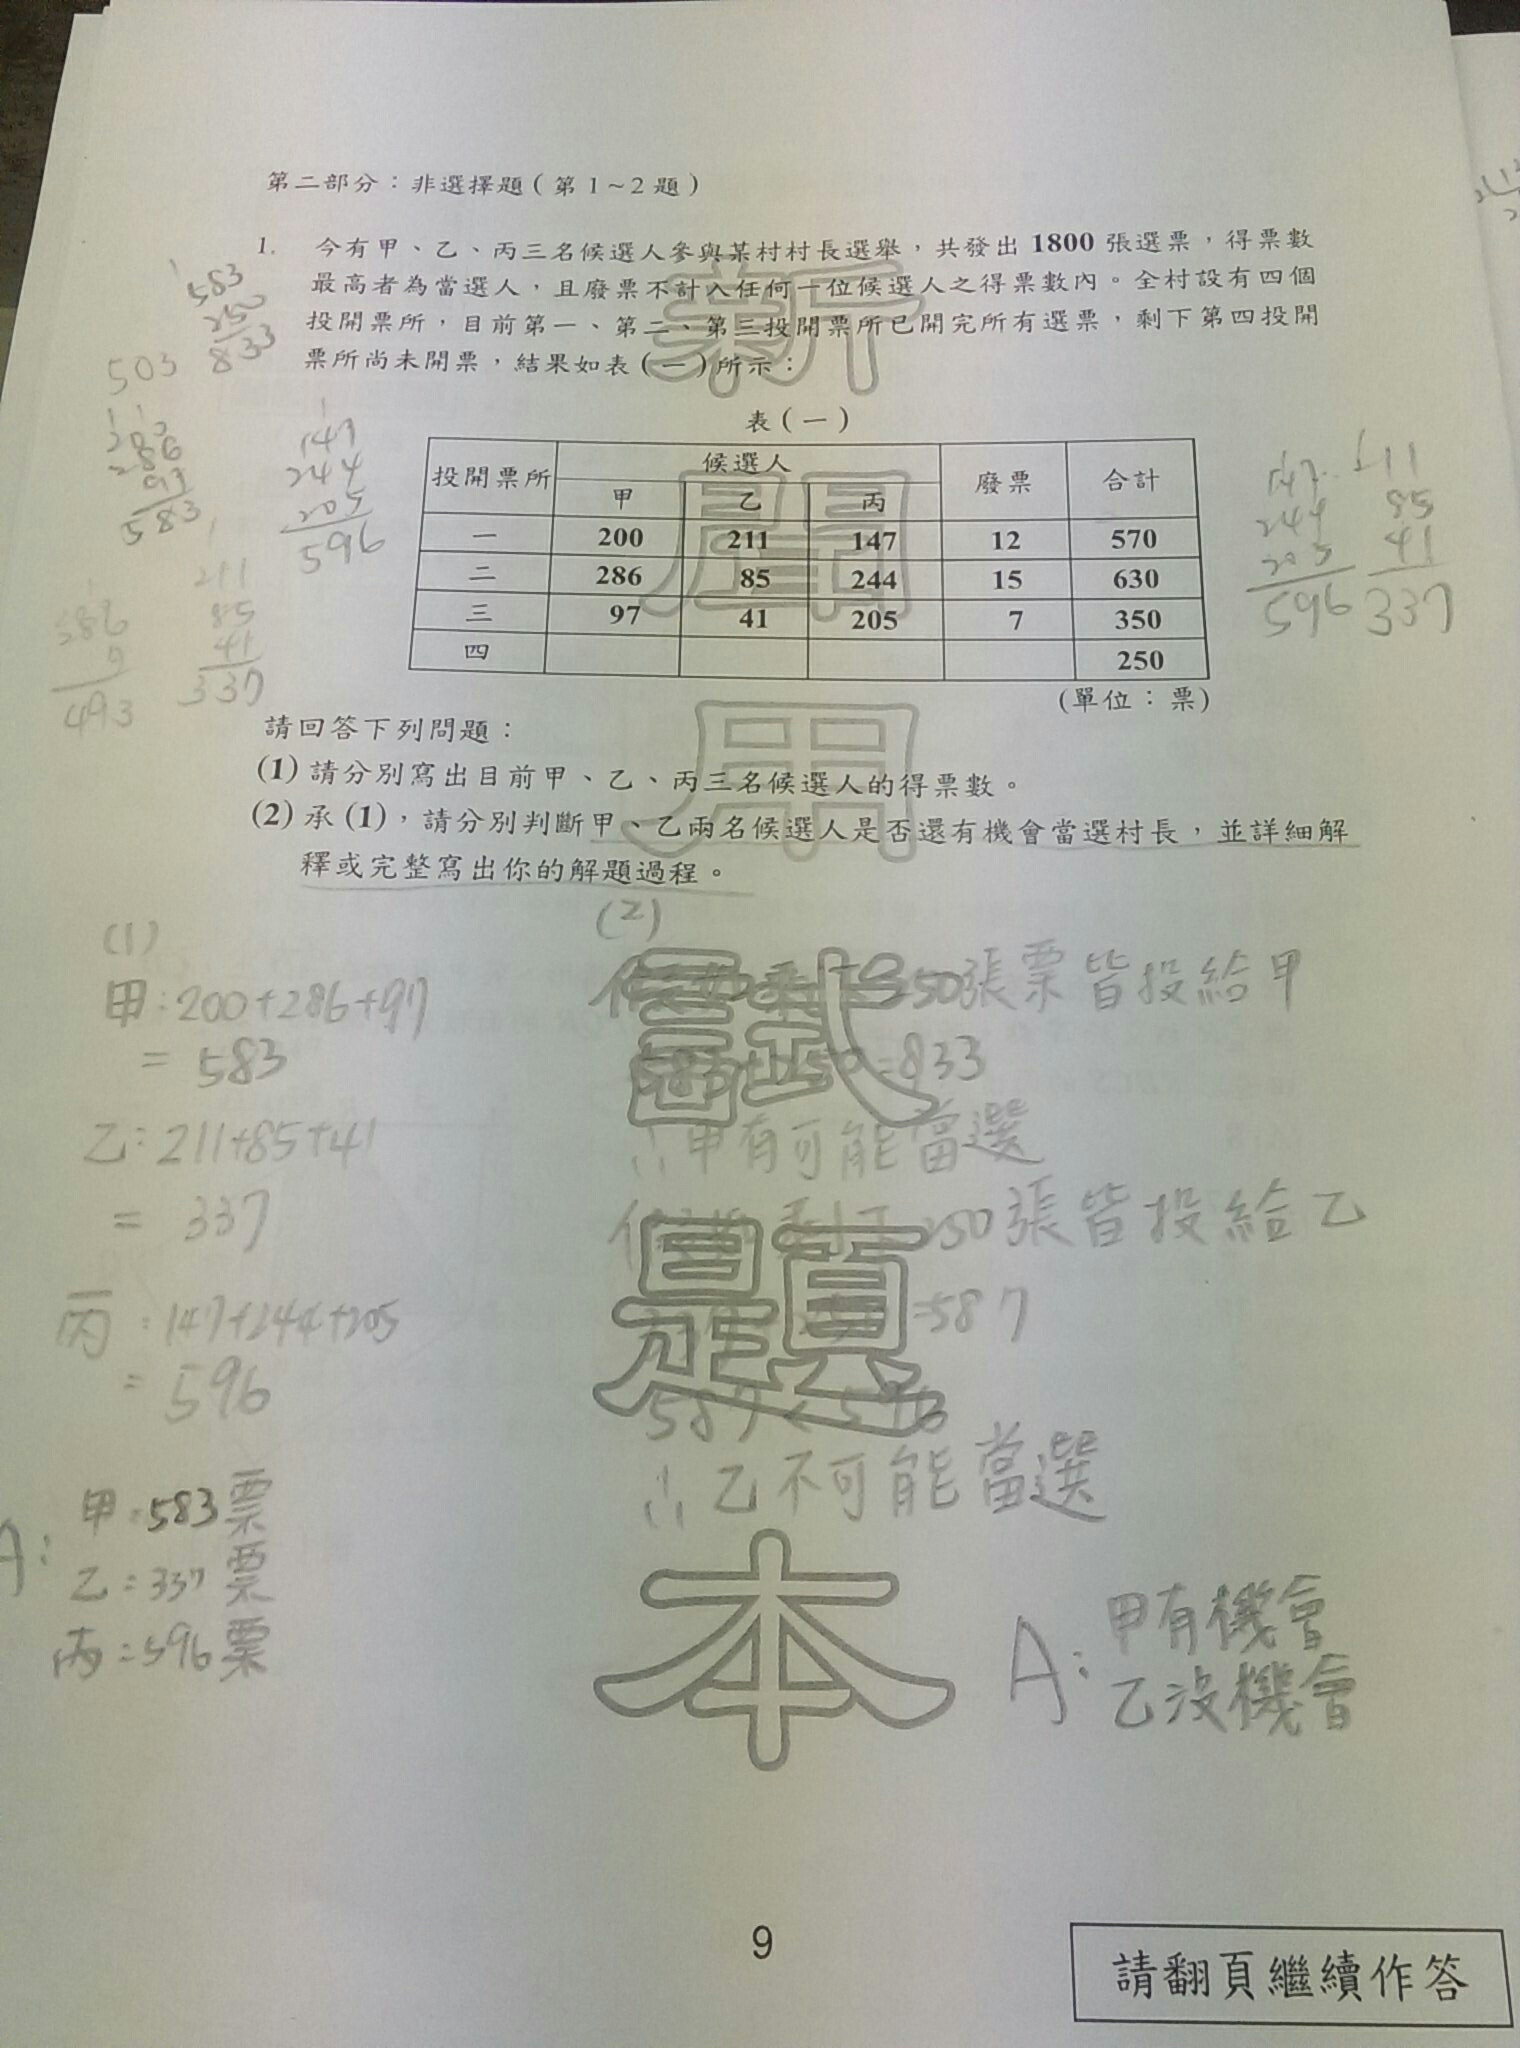 第二部分：非選擇題（第1～2題）
1. 今有甲、乙、丙三名候選人參與某村村長選舉，共發出 1800 張選票，得票數
最高者為當選人，且廢票不計入任何一位候選人之得票數內。全村設有四個
投開票所，目前第一、第二、第三投開票所已開完所有選票，剩下第四投開
票所尚未開票，結果如表（一）所示：
583
250
833
503
286
97
583
147
244
205
596
表（一）
投開票所 候選人 廢票 合計
甲 乙 丙
一 200 211 147 12 570
二 286 85 244 15 630
三 97 41 205 7 350
四 250
（單位：票）
147 211
244 85
205 41
596 337
586
9
493
211
85
41
337
請回答下列問題：
(1) 請分別寫出目前甲、乙、丙三名候選人的得票數。
(2) 承 (1)，請分別判斷甲、乙兩名候選人是否還有機會當選村長，並詳細解
釋或完整寫出你的解題過程。
(1)
甲：200+286+97
= 583
乙：211+85+41
= 337
丙：147+244+205
= 596
A：甲：583票
乙：337票
丙：596票
(2)
250張票皆投給甲
583+250=833
∴甲有可能當選
250張皆投給乙
=587
587<596
∴乙不可能當選
A：甲有機會
乙沒機會
新
用
試
題
本
9
請翻頁繼續作答